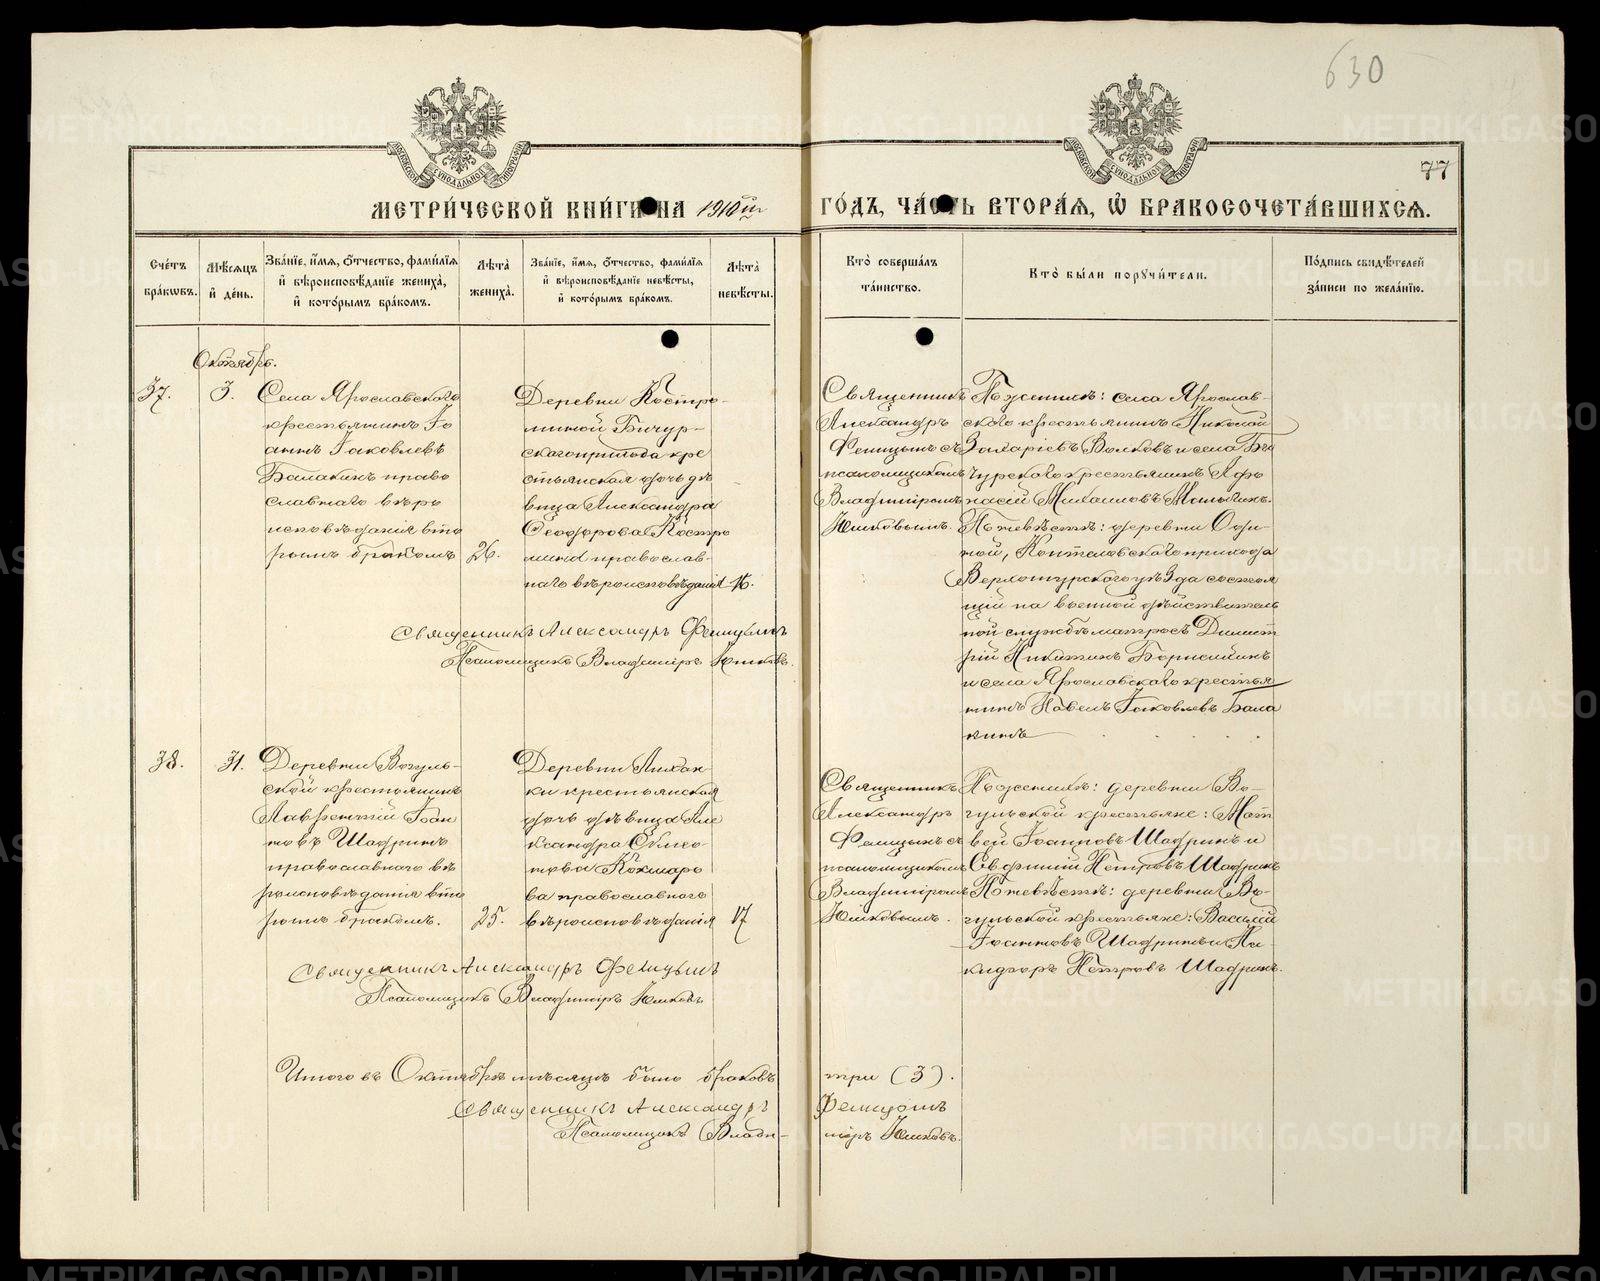 630
77
МЕТРИ́ЧЕСКОЙ КНИ́ГИ НА 1910й ГО́ДЪ, ЧА́СТЬ ВТОРА́Я, Ѡ БРАКОСОЧЕТА́ВШИХСЯ.
Сче́тъ бра́кѡвъ.
Мѣ́сяцъ и де́нь.
Зва́нїе, и́мя, ѻ́тчество, фами́лїя и вѣроисповѣ́данїе жениха̀, и кото́рымъ бра́комъ.
Лѣта̀ жениха̀.
Зва́нїе, и́мя, ѻ́тчество, фами́лїя и вѣроисповѣ́данїе невѣ́сты, и кото́рымъ бра́комъ.
Лѣта̀ невѣ́сты.
Кто̀ соверша́лъ та́инство.
Кто̀ бы́ли порꙋчи́тели.
По́дпись свидѣ́телей за́писи по жела́нїю.
Октябрь.
37.
3.
Села Ярославскаго
крестьянинъ Іо
аннъ Іаковлевъ
Балакинъ право
славнаго вѣро
исповѣданія вто
рымъ бракомъ
26.
Деревни Костро-
миной Бичур-
скаго прихода кре
стьянская дочь дѣ
вица Александра
Ѳеодорова Костро
мина православ-
наго вѣроисповѣданія
Священникъ
Александръ
съ
псаломщикомъ
Владиміромъ
По женихѣ: села Ярослав-
скаго крестьянинъ Николай
Захаріевъ Волковъ и села Би
чурскаго крестьянинъ Аѳа
насій Михаиловъ
По невѣстѣ: деревни Оди-
ной, Коптеловскаго прихода
Верхотурскаго уѣзда состоя
щій на военной дѣйствитель
ной службѣ матросъ Димит
рій Никитинъ
и села Ярославскаго крестья
нинъ Павелъ Іаковлевъ Бала
кинъ
Священникъ Александръ
Псаломщикъ Владиміръ
38.
31.
Деревни Вогуль-
ской крестьянинъ
Лаврентій Іоан
новъ Шадринъ
православнаго вѣ
роисповѣданія вто
рымъ бракомъ.
25.
Деревни Лихан-
ки крестьянская
дочь дѣвица Але
ксандра
Кокшаро
ва православнаго
вѣроисповѣданія
17
Священникъ
Александръ
съ
псаломщикомъ
Владиміромъ
По женихѣ: деревни Во-
гульской крестьяне: Мат
вей Іоанновъ Шадринъ и
Евфимій Петровъ Шадринъ
По невѣстѣ: деревни Во-
гульской крестьяне: Василій
Іоанновъ Шадринъ и Ни-
кифоръ Петровъ Шадринъ.
Священникъ Александръ
Псаломщикъ Владиміръ
Итого въ Октябрѣ мѣсяцѣ было браковъ три (3).
Священникъ Александръ
Псаломщикъ Влади-
міръ
METRIKI.GASO-URAL.RU